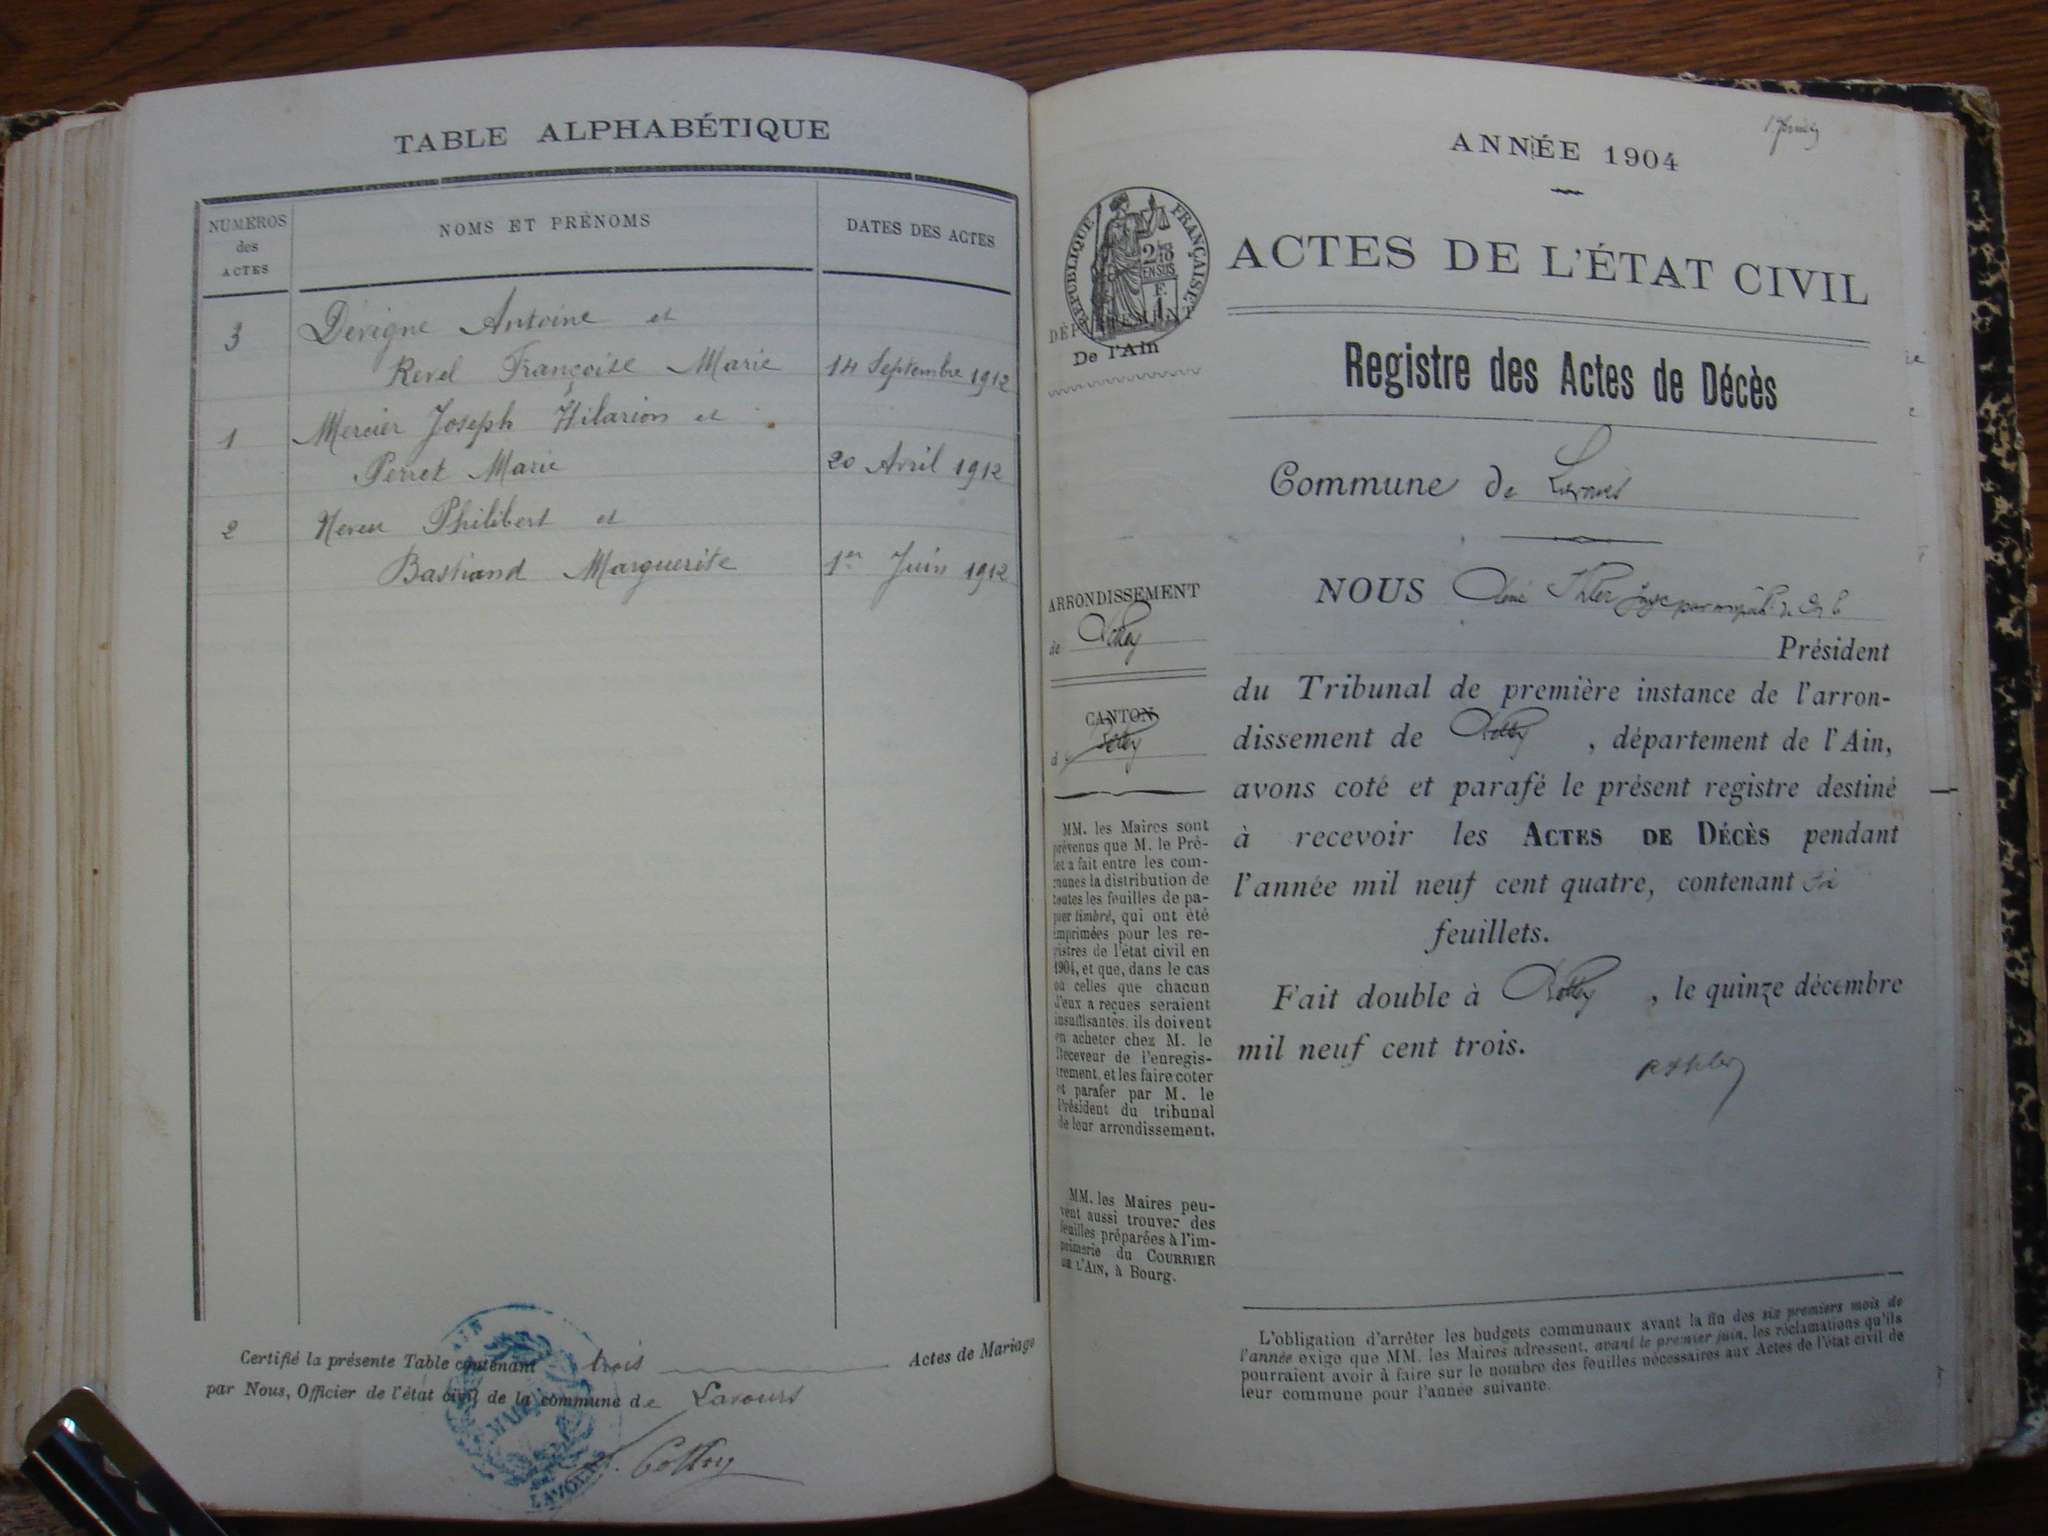 TABLE ALPHABÉTIQUE
NUMÉROS
des
ACTES
NOMS ET PRÉNOMS
DATES DES ACTES
3 Dérigne Antoine et
Revel Françoise Marie 14 Septembre 1912
1 Mercier Joseph Hilarion et
Perret Marie 20 Avril 1912
2 Neveu Philibert et
Bastiand Marguerite 1er Juin 1912
Certifié la présente Table contenant trois Actes de Mariage
par Nous, Officier de l'état civil de la commune de Lavours
ANNÉE 1904
RÉPUBLIQUE FRANÇAISE
2/10
EN SUS
F.
1
DÉPARTEMENT
De l'Ain
ACTES DE L'ÉTAT CIVIL
Registre des Actes de Décès
Commune de Lavours
ARRONDISSEMENT
de Belley
CANTON
d
MM. les Maires sont
prévenus que M. le Pré-
fet a fait entre les com-
munes la distribution de
toutes les feuilles de pa-
pier timbré, qui ont été
imprimées pour les re-
gistres de l'état civil en
1904, et que, dans le cas
où celles que chacun
d'eux a reçues seraient
insuffisantes, ils doivent
en acheter chez M. le
Receveur de l'enregis-
trement, et les faire coter
et parafer par M. le
Président du tribunal
de leur arrondissement.
MM. les Maires peu-
vent aussi trouver des
feuilles préparées à l'im-
primerie du COURRIER
DE L'AIN, à Bourg.
NOUS
Président
du Tribunal de première instance de l'arron-
dissement de Belley, département de l'Ain,
avons coté et parafé le présent registre destiné
à recevoir les ACTES DE DÉCÈS pendant
l'année mil neuf cent quatre, contenant
feuillets.
Fait double à Belley, le quinze décembre
mil neuf cent trois.
L'obligation d'arrêter les budgets communaux avant la fin des six premiers mois de
l'année exige que MM. les Maires adressent, avant le premier juin, les réclamations qu'ils
pourraient avoir à faire sur le nombre des feuilles nécessaires aux Actes de l'état civil de
leur commune pour l'année suivante.